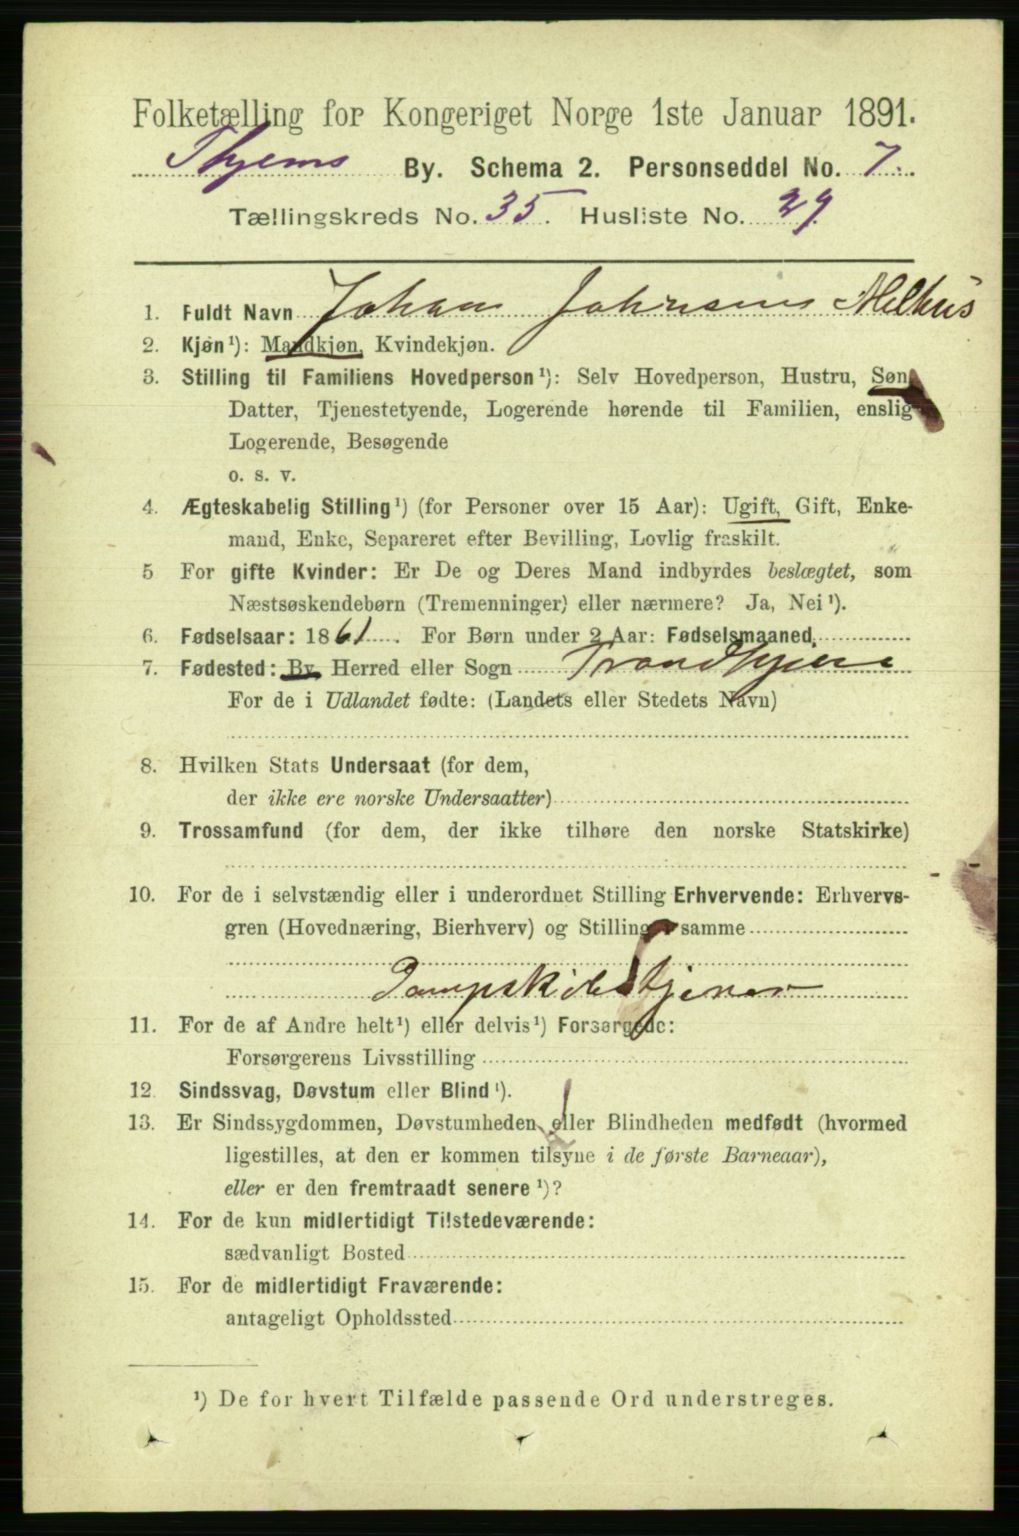 Folketælling for Kongeriget Norge 1ste Januar 1891.
Thjems By. Schema 2. Personseddel No. 7.
Tællingskreds No. 35. Husliste No. 29.
1. Fuldt Navn Johan Johnsen Melhus
2. Kjøn¹): Mandkjøn, Kvindekjøn.
3. Stilling til Familiens Hovedperson¹): Selv Hovedperson, Hustru, Søn,
Datter, Tjenestetyende, Logerende hørende til Familien, enslig
Logerende, Besøgende
o. s. v.
4. Ægteskabelig Stilling¹) (for Personer over 15 Aar): Ugift, Gift, Enke-
mand, Enke, Separeret efter Bevilling, Lovlig fraskilt.
5 For gifte Kvinder: Er De og Deres Mand indbyrdes beslægtet, som
Næstsøskendebørn (Tremenninger) eller nærmere? Ja, Nei¹).
6. Fødselsaar: 1861. For Børn under 2 Aar: Fødselsmaaned
7. Fødested: By, Herred eller Sogn Trondhjem
For de i Udlandet fødte: (Landets eller Stedets Navn)
8. Hvilken Stats Undersaat (for dem,
der ikke ere norske Undersaatter)
9. Trossamfund (for dem, der ikke tilhøre den norske Statskirke)
10. For de i selvstændig eller i underordnet Stilling Erhvervende: Erhvervs-
gren (Hovednæring, Bierhverv) og Stilling i samme
Dampskibstjener
11. For de af Andre helt¹) eller delvis¹) Forsørgede:
Forsørgerens Livsstilling
12. Sindssvag, Døvstum eller Blind¹).
13. Er Sindssygdommen, Døvstumheden eller Blindheden medfødt (hvormed
ligestilles, at den er kommen tilsyne i de første Barneaar),
eller er den fremtraadt senere¹)?
14. For de kun midlertidigt Tilstedeværende:
sædvanligt Bosted
15. For de midlertidigt Fraværende:
antageligt Opholdssted
¹) De for hvert Tilfælde passende Ord understreges.